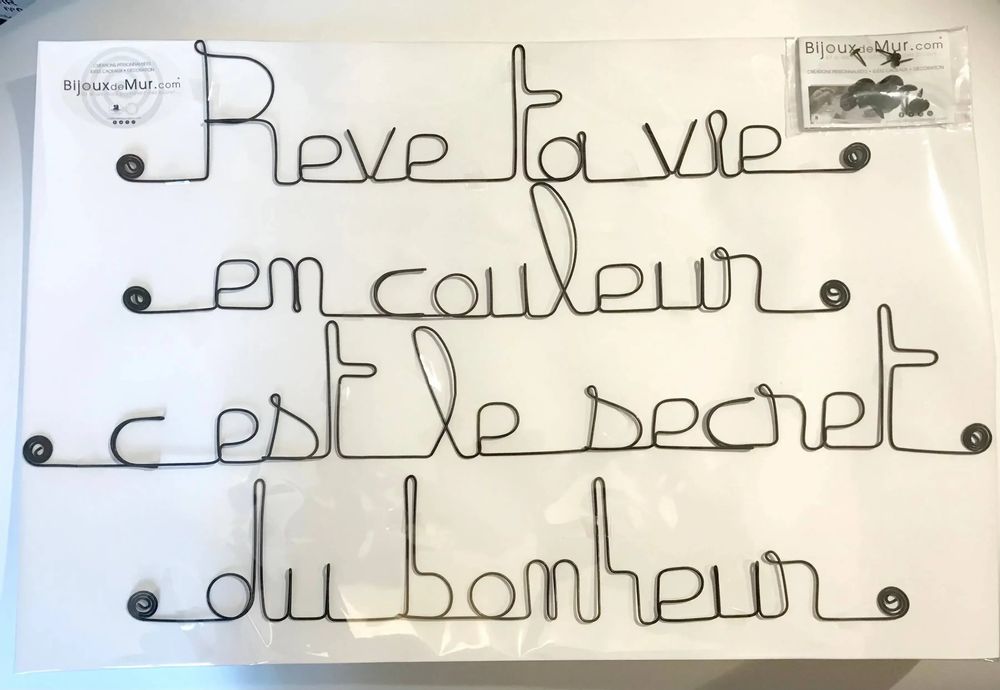 CRÉATIONS PERSONNALISÉES
IDÉES CADEAUX + DÉCORATION
BijouxdeMur.com
BijouxdeMur.com
CRÉATIONS PERSONNALISÉES + IDÉES CADEAUX + DÉCORATION
Reve ta vie
en couleur
c'est le secret
du bonheur